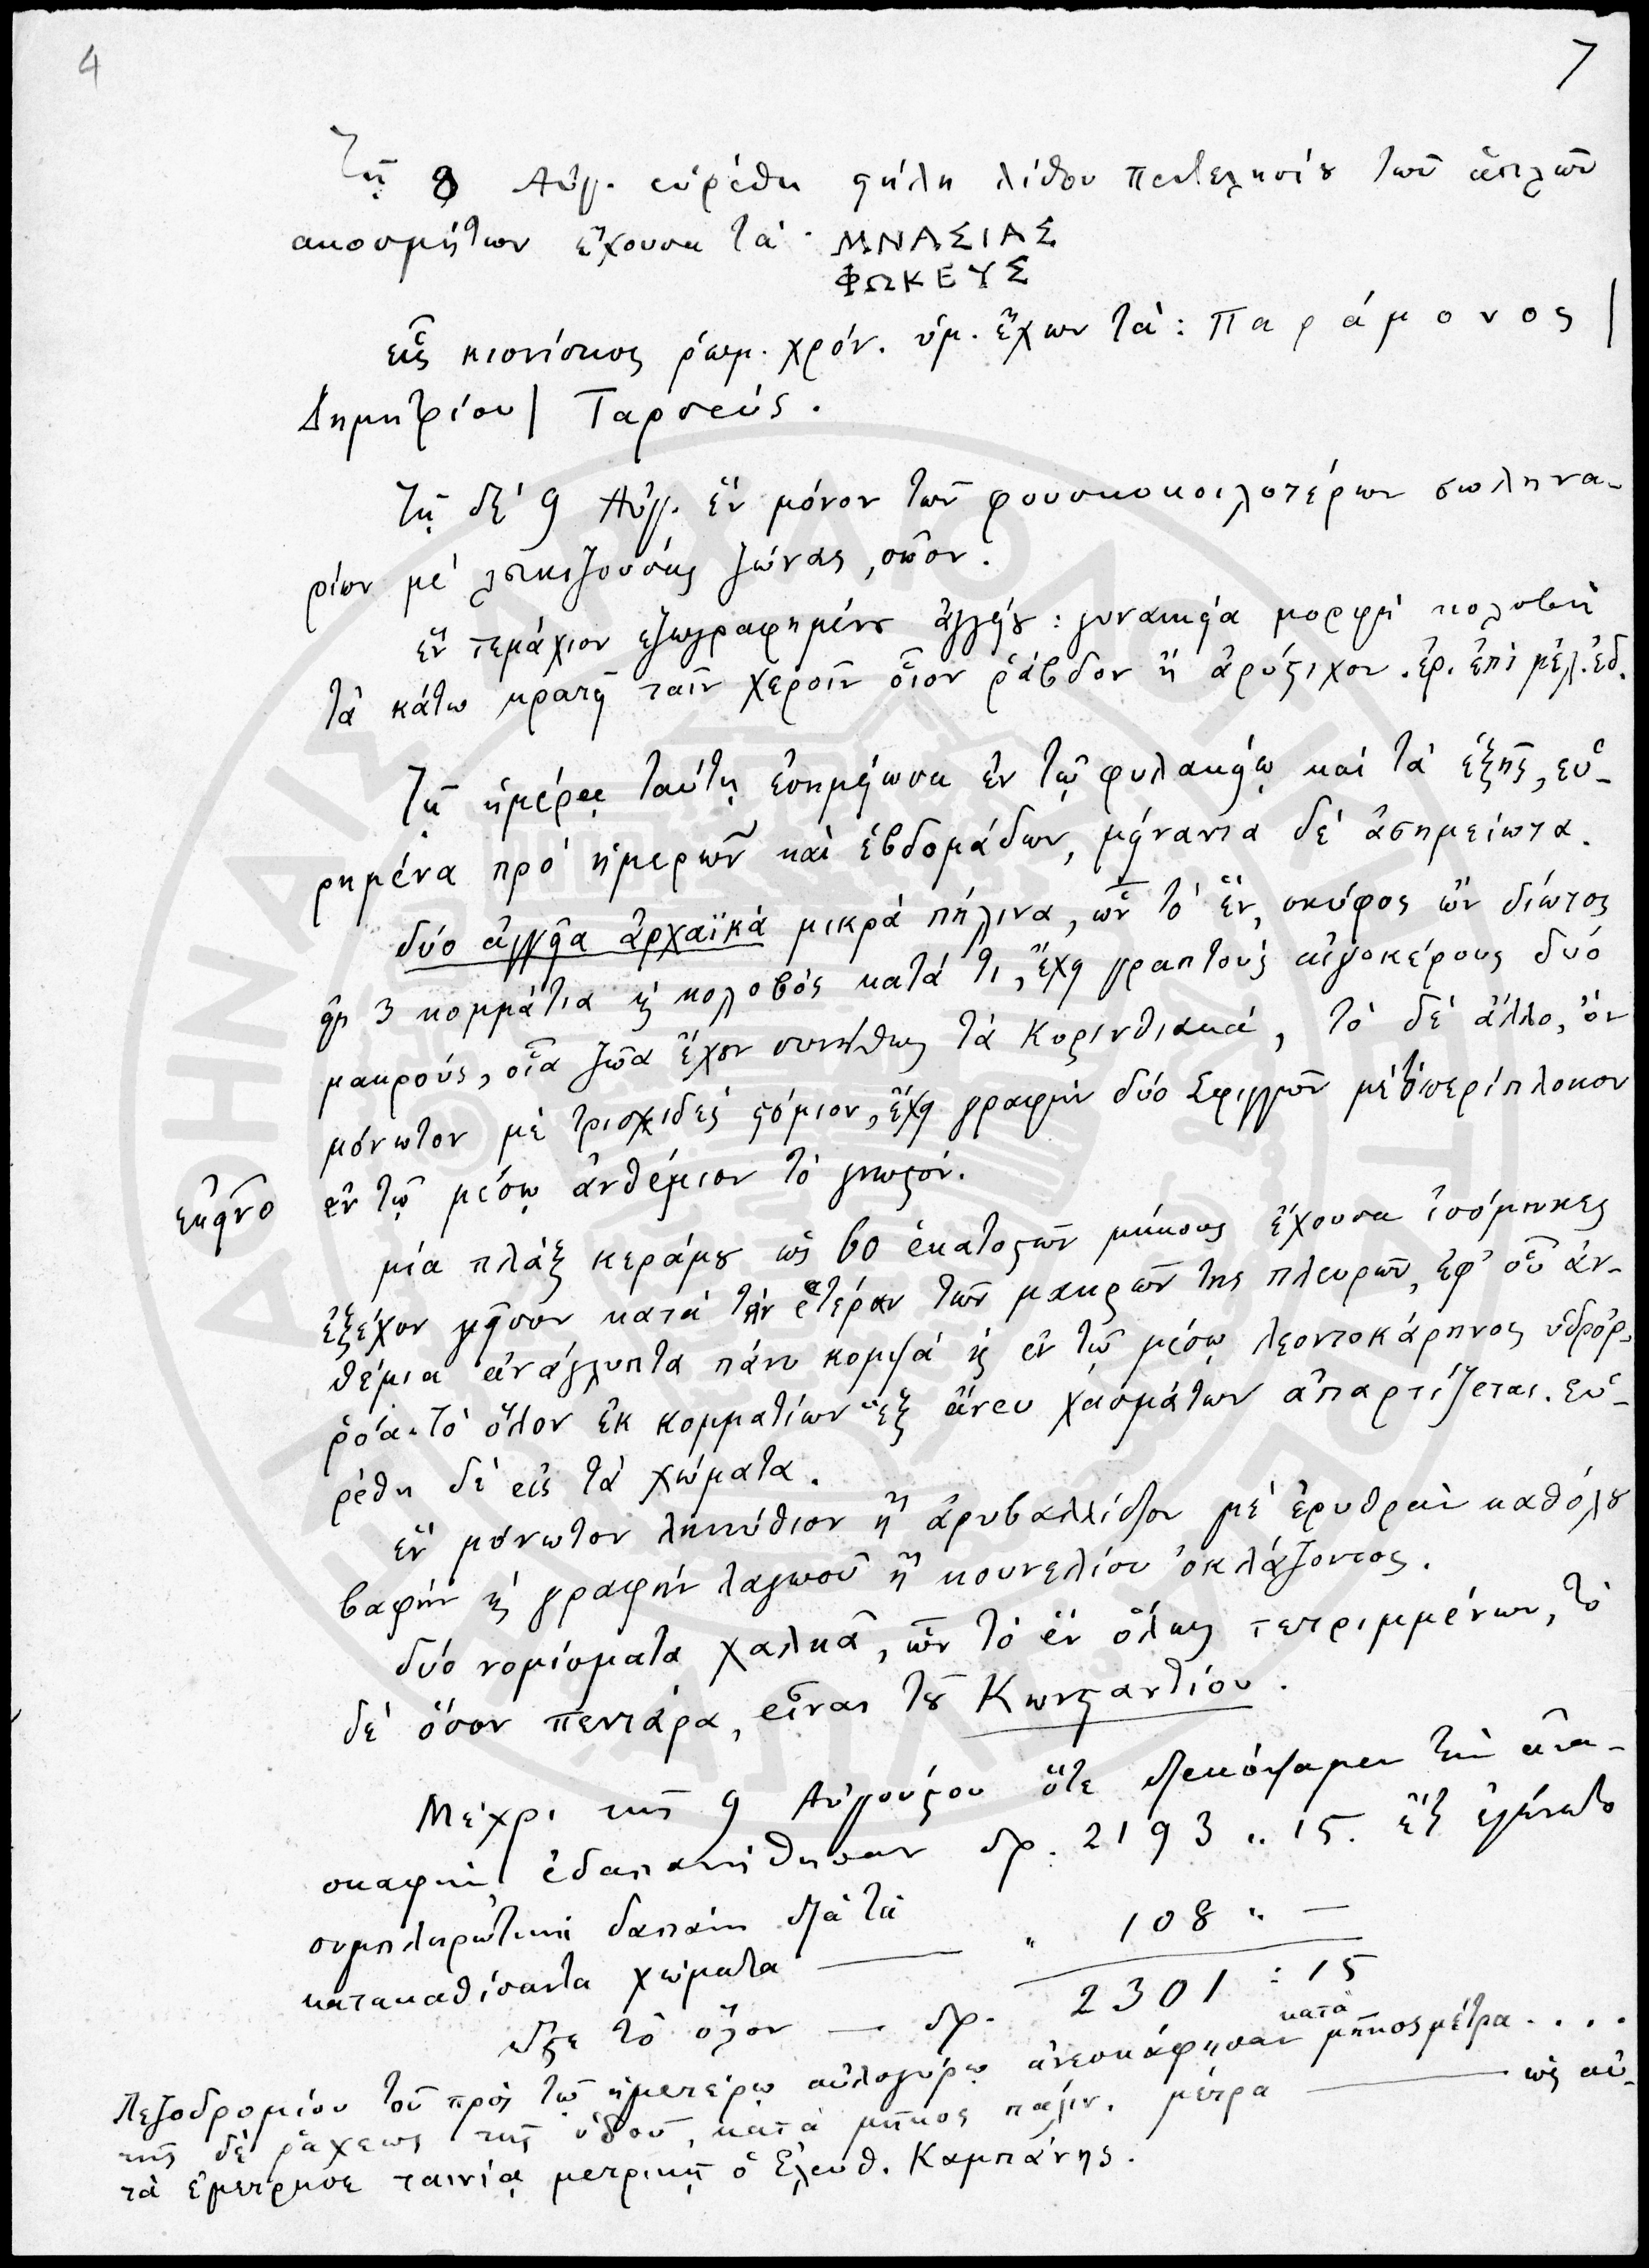 4
7
Τῇ 8 Αὐγ. εὑρέθη στήλη λίθου πεντελησίου τῶν ἁπλῶν
ακοσμήτων ἔχουσα τὰ· ΜΝΑΣΙΑΣ
ΦΩΚΕΥΣ
εἷς κιονίσκος ῥωμ. χρόν. ὑμ. ἔχων τὰ: Παράμονος |
Δημητρίου | Ταρσεύς.
Τῇ δὲ 9 Αὐγ. ἓν μόνον τῶν φουσκοκοιλοτέρων σωληνα-
ρίων μὲ λευκιζούσας ζώνας, σῶον.
ἓν τεμάχιον ἐζωγραφημένου ἀγγείου: γυναικεία μορφὴ κολοβὴ
τὰ κάτω κρατεῖ ταῖν χεροῖν οἷον ῥάβδον ἢ ἀρύστιχον. ἐρ. ἐπὶ μέλ. ἐδ.
Τῇ ἡμέρᾳ ταύτῃ ἐσημείωσα ἐν τῷ φυλακείῳ καὶ τὰ ἑξῆς, εὑ-
ρημένα πρὸ ἡμερῶν καὶ ἑβδομάδων, μείναντα δὲ ἀσημείωτα.
δύο ἀγγεῖα ἀρχαϊκὰ μικρὰ πήλινα, ὧν τὸ ἓν, σκύφος ὢν δίωτος
εἰς 3 κομμάτια κ κολοβὸς κατά τι, ἔχει γραπτοὺς αἰγοκέρους δύο
μακρούς, οἷα ζῶα ἔχουν συνήθως τὰ Κορινθιακά, τὸ δὲ ἄλλο, ὂν
μόνωτον μὲ τρισχιδὲς στόμιον, ἔχει γραφὴν δύο Σφιγγῶν μὲ τὸ περίπλοκον
ἐν τῷ μέσῳ ἀνθέμιον τὸ γνωστόν.
ἐκεῖνο
μία πλὰξ κεράμου ὡς 60 ἑκατοστῶν μήκους ἔχουσα ἰσόμηκες
ἐξέχον γεῖσον κατὰ τὴν ἑτέραν τῶν μακρῶν της πλευρῶν, ἐφ' οὗ ἀν-
θέμια ἀνάγλυπτα πάνυ κομψὰ κ ἐν τῷ μέσῳ λεοντοκάρηνος ὑδρορ-
ρόα. τὸ ὅλον ἐκ κομματίων ἓξ ἄνευ χασμάτων ἀπαρτίζεται. εὑ-
ρέθη δὲ εἰς τὰ χώματα.
ἓν μόνωτον ληκύθιον ἢ ἀρυβαλλίδιον μὲ ἐρυθρὰν καθόλου
βαφὴν κ γραφὴν λαγωοῦ ἢ κουνελίου ὀκλάζοντος.
δύο νομίσματα χαλκᾶ, ὧν τὸ ἓν ὅλως τετριμμένων, τὸ
δὲ ὅσον πεντάρα, εἶναι τοῦ Κωνσταντίου.
Μέχρι τῆς 9 Αὐγούστου ὅτε διεκόψαμεν τὴν ἀνα-
σκαφὴν ἐδαπανήθησαν δρ. 2193 " 15. ἐγένετο
συμπληρωτικὴ δαπάνη διὰ τὰ
κατακαθίσαντα χώματα — " 108 " —
ὥστε τὸ ὅλον — δρ. 2301 : 15
Πεζοδρομίου τοῦ πρὸς τῷ ἡμετέρῳ αὐλογύρῳ ἀνεσκάφησαν κατὰ μῆκος μέτρα . . . .
τῆς δὲ ῥάχεως τῆς ὁδοῦ, κατὰ μῆκος πάλιν. μέτρα — ὡς αὐ-
τὰ ἐμέτρησε ταινίᾳ μετρικῇ ὁ Ἐλευθ. Καμπάνης.